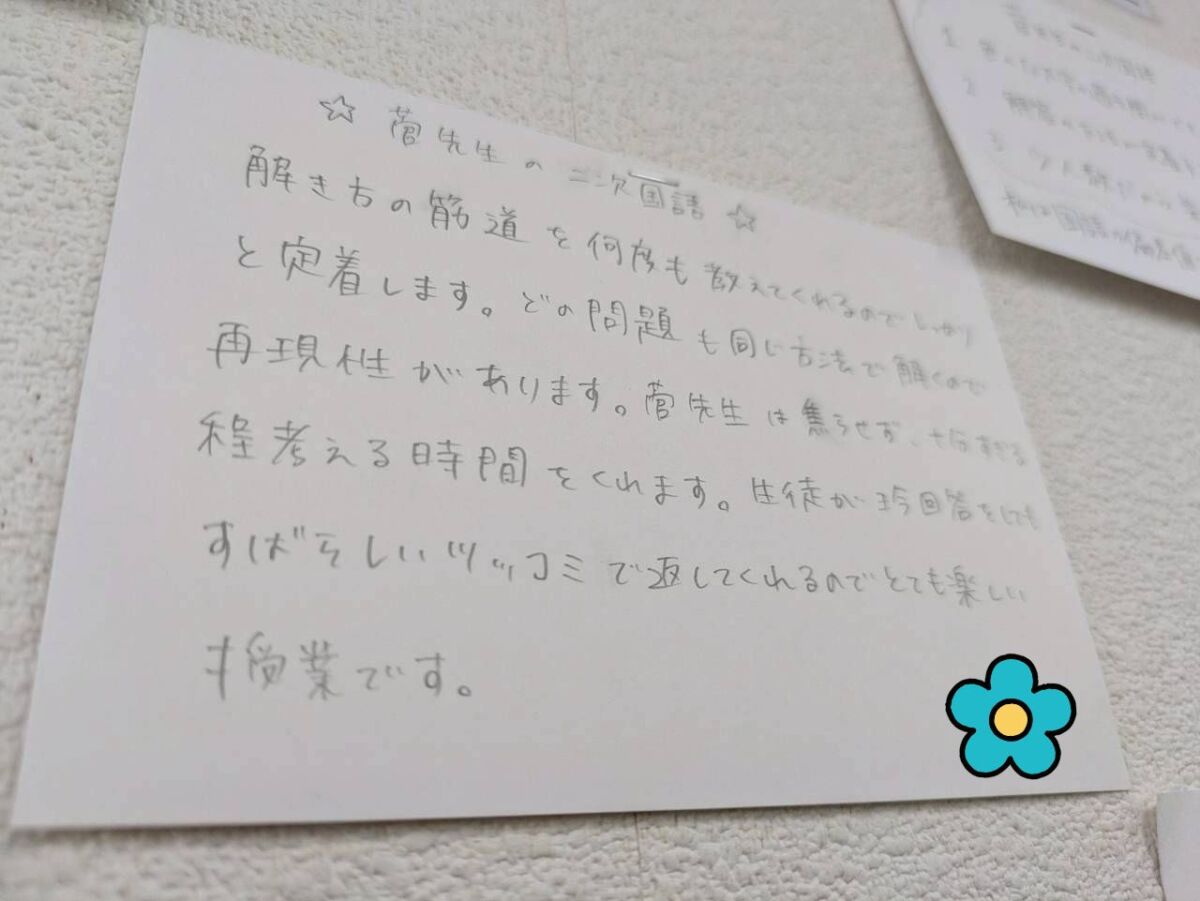 ☆ 菅先生の二次国語 ☆
解き方の筋道を何度も教えてくれるのでしっかり
と定着します。どの問題も同じ方法で解くので
再現性があります。菅先生は焦らせず、十分すぎる
程考える時間をくれます。生徒が珍回答をしても
すばらしいツッコミで返してくれるのでとても楽しい
授業です。